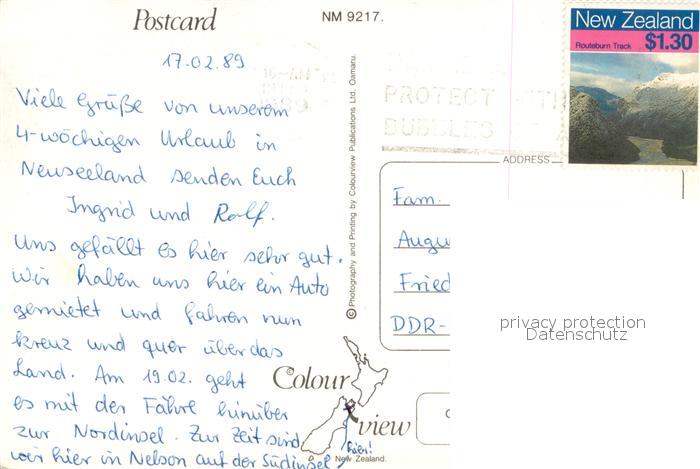 Postcard
NM 9217.
17.02.89
Viele Grüße von unserem
4-wöchigen Urlaub in
Neuseeland senden Euch
Ingrid und Rolf.
Uns gefällt es hier sehr gut.
Wir haben uns hier ein Auto
gemietet und fahren nun
kreuz und quer über das
Land. Am 19.02. geht
es mit der Fähre hinüber
zur Nordinsel. Zur Zeit sind
wir hier in Nelson auf der Südinsel
hier!
© Photography and Printing by Colourview Publications Ltd. Oamaru.
Colour
view
New Zealand.
PROTECT
BUBBLES
New Zealand
Routeburn Track $1.30
ADDRESS
Fam.
Augu
Fried
DDR-
privacy protection
Datenschutz